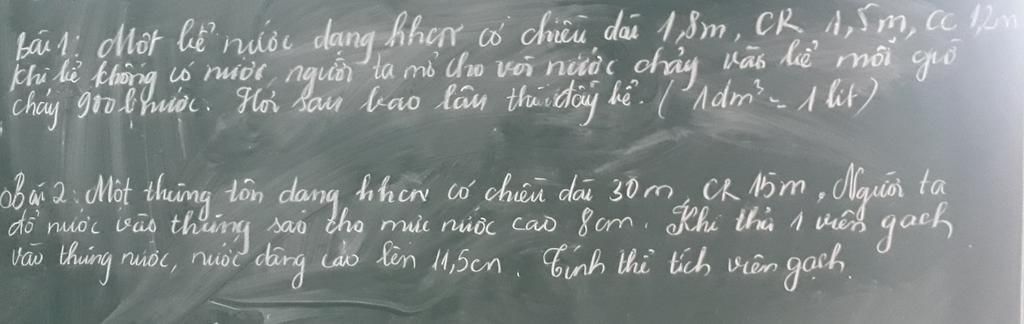 Bài 1: Một bể nước dạng hhcn có chiều dài 1,8m, CR 1,5m, CC 1,2m
khi bể không có nước, người ta mở cho vòi nước chảy vào bể mỗi giờ
chảy 900l nước. Hỏi sau bao lâu thì đầy bể. (1dm³ = 1 lít)
Bài 2: Một thùng tôn dạng hhcn có chiều dài 30m, CR 15m. Người ta
đổ nước vào thùng sao cho mức nước cao 8cm. Khi thả 1 viên gạch
vào thùng nước, nước dâng cao lên 11,5cm. Tính thể tích viên gạch.